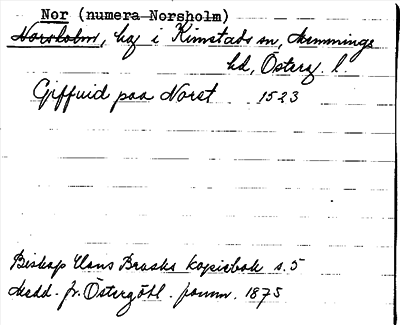 Nor (numera Norsholm)
Norsholm, hg i Kimstads sn, Memmings
hd, Österg. l.
Giffuid paa Norst 1523
Biskop Hans Brasks kopiebok s. 5
Medd. fr. Östergötl. fornm. 1875